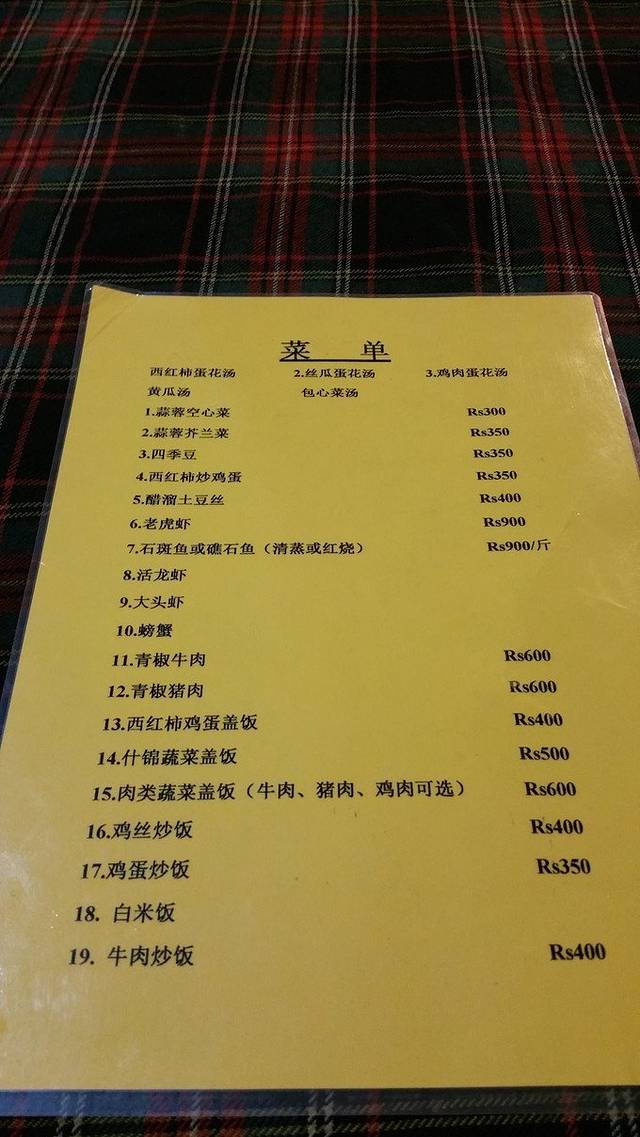 菜 单
西红柿蛋花汤 2.丝瓜蛋花汤 3.鸡肉蛋花汤
黄瓜汤 包心菜汤
1.蒜蓉空心菜 Rs300
2.蒜蓉芥兰菜 Rs350
3.四季豆 Rs350
4.西红柿炒鸡蛋 Rs350
5.醋溜土豆丝 Rs400
6.老虎虾 Rs900
7.石斑鱼或礁石鱼（清蒸或红烧） Rs900/斤
8.活龙虾
9.大头虾
10.螃蟹
11.青椒牛肉 Rs600
12.青椒猪肉 Rs600
13.西红柿鸡蛋盖饭 Rs400
14.什锦蔬菜盖饭 Rs500
15.肉类蔬菜盖饭（牛肉、猪肉、鸡肉可选） Rs600
16.鸡丝炒饭 Rs400
17.鸡蛋炒饭 Rs350
18. 白米饭
19. 牛肉炒饭 Rs400